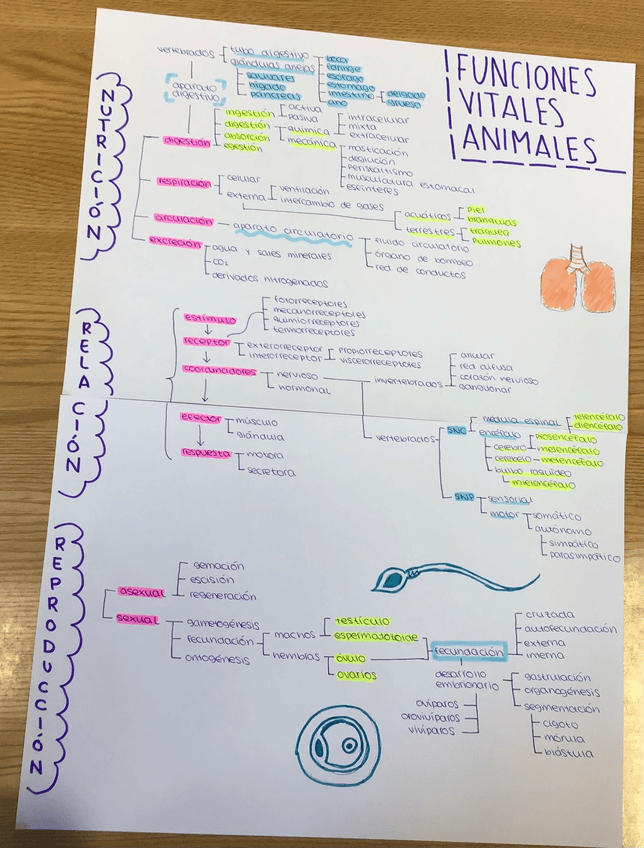 FUNCIONES
VITALES
ANIMALES
NUTRICIÓN
vertebrados
tubo digestivo
boca
faringe
esófago
estómago
intestino
delgado
grueso
ano
glándulas anejas
salivares
hígado
páncreas
aparato
digestivo
digestión
ingestión
activa
pasiva
digestión
química
intracelular
mixta
extracelular
mecánica
masticación
deglución
peristaltismo
musculatura estomacal
esfínteres
absorción
egestión
respiración
celular
externa
ventilación
intercambio de gases
acuáticos
piel
branquias
terrestres
tráquea
pulmones
circulación
aparato circulatorio
fluido circulatorio
órgano de bombeo
red de conductos
excreción
agua y sales minerales
CO₂
derivados nitrogenados
RELACIÓN
estímulo
receptor
fotorreceptores
mecanorreceptores
quimiorreceptores
termorreceptores
exterorreceptor
interorreceptor
propiorreceptores
viscerorreceptores
coordinadores
nervioso
hormonal
invertebrados
anular
red difusa
cordón nervioso
ganglionar
vertebrados
SNC
médula espinal
encéfalo
telencéfalo
diencéfalo
cerebro
prosencéfalo
mesencéfalo
cerebelo
metencéfalo
bulbo raquídeo
mielencéfalo
SNP
sensorial
motor
somático
autónomo
simpático
parasimpático
efector
músculo
glándula
respuesta
motora
secretora
REPRODUCCIÓN
asexual
gemación
escisión
regeneración
sexual
gametogénesis
fecundación
machos
testículo
espermatozoide
hembras
óvulo
ovarios
ontogénesis
fecundación
cruzada
autofecundación
externa
interna
desarrollo
embrionario
gastrulación
organogénesis
segmentación
cigoto
mórula
blástula
ovíparos
ovovivíparos
vivíparos